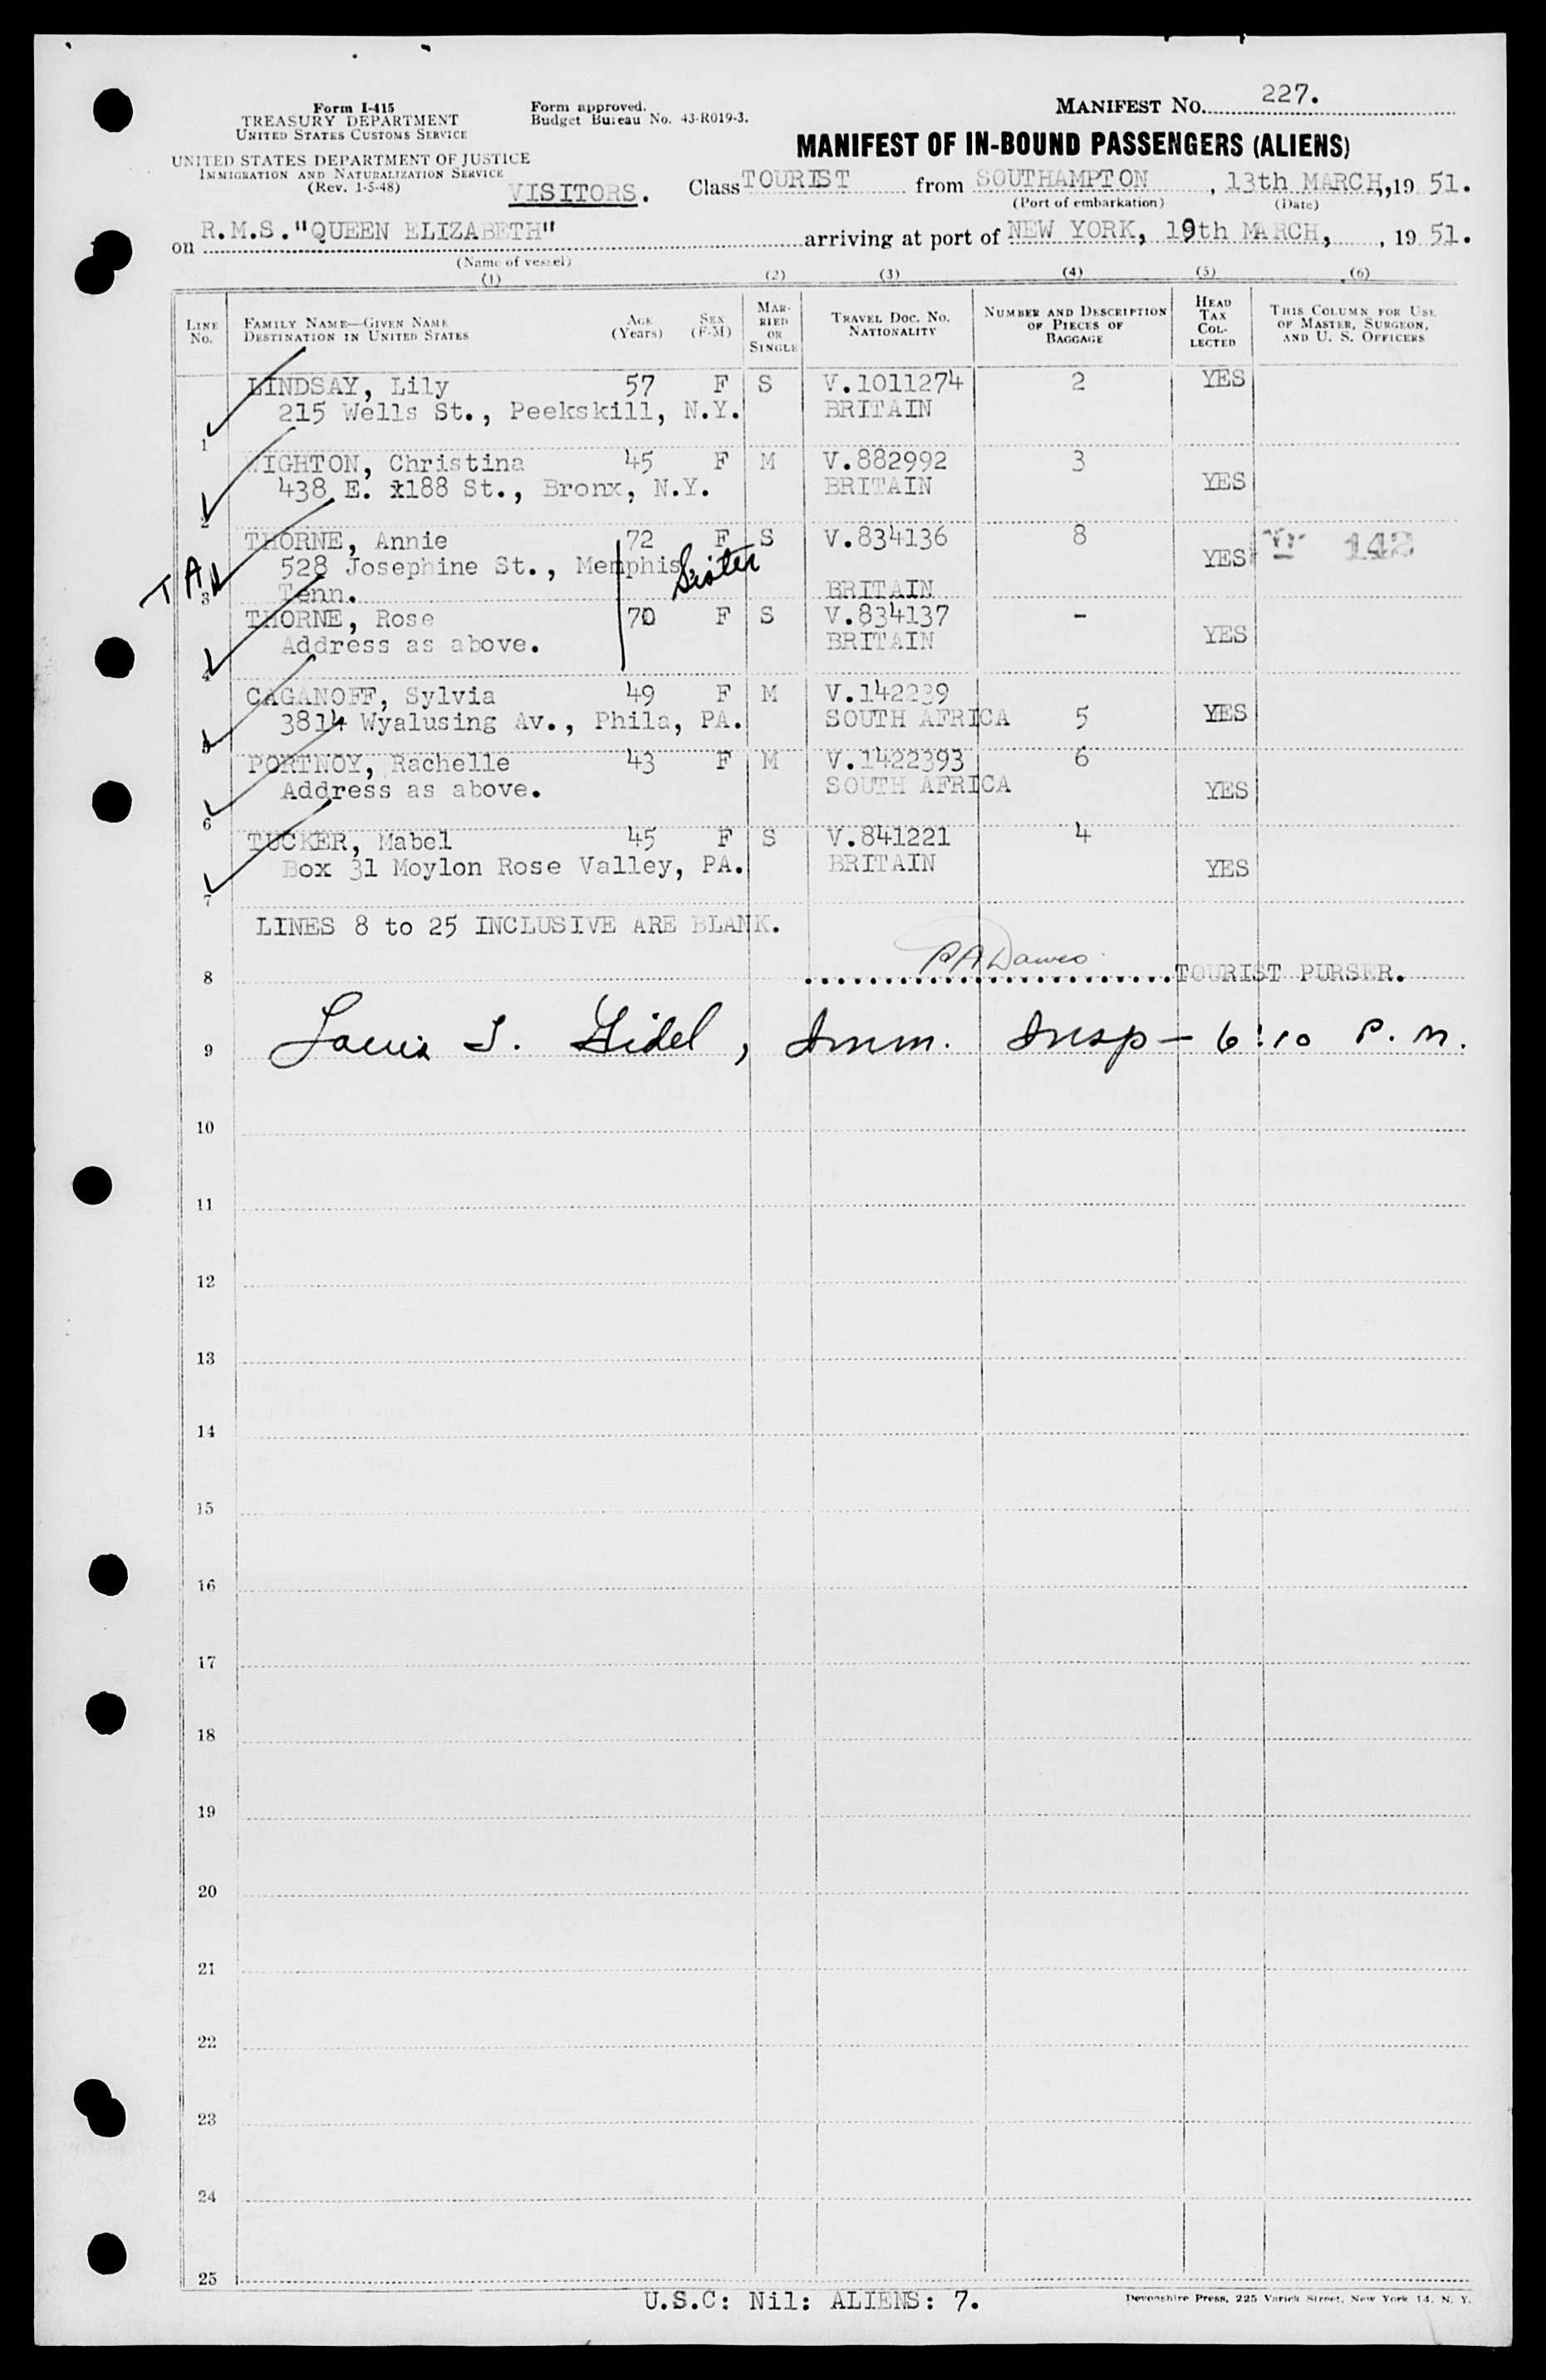 Form I-415
TREASURY DEPARTMENT
UNITED STATES CUSTOMS SERVICE
UNITED STATES DEPARTMENT OF JUSTICE
IMMIGRATION AND NATURALIZATION SERVICE
(Rev. 1-5-48)
Form approved.
Budget Bureau No. 43-R019-3.
MANIFEST NO. 227.
MANIFEST OF IN-BOUND PASSENGERS (ALIENS)
VISITORS. Class TOURIST from SOUTHAMPTON, 13th MARCH,, 19 51.
(Port of embarkation) (Date)
on R.M.S. "QUEEN ELIZABETH" arriving at port of NEW YORK, 19th MARCH, , 19 51.
(Name of vessel)
(1) (2) (3) (4) (5) (6)
LINE NO. FAMILY NAME—GIVEN NAME DESTINATION IN UNITED STATES AGE (Years) SEX (F-M) MARRIED OR SINGLE TRAVEL DOC. NO. NATIONALITY NUMBER AND DESCRIPTION OF PIECES OF BAGGAGE HEAD TAX COLLECTED THIS COLUMN FOR USE OF MASTER, SURGEON, AND U. S. OFFICERS
LINDSAY, Lily 57 F S V.1011274 2 YES
215 Wells St., Peekskill, N.Y. BRITAIN
1
WIGHTON, Christina 45 F M V.882992 3
438 E. 188 St., Bronx, N.Y. BRITAIN YES
2
THORNE, Annie 72 F S V.834136 8
528 Josephine St., Memphis Sister YES 142
T A 3 Tenn. BRITAIN
THORNE, Rose 70 F S V.834137 -
Address as above. BRITAIN YES
4
CAGANOFF, Sylvia 49 F M V.142239
3814 Wyalusing Av., Phila, PA. SOUTH AFRICA 5 YES
5
PORTNOY, Rachelle 43 F M V.1422393 6
Address as above. SOUTH AFRICA YES
6
TUCKER, Mabel 45 F S V.841221 4
Box 31 Moylon Rose Valley, PA. BRITAIN YES
7
LINES 8 to 25 INCLUSIVE ARE BLANK.
8 TOURIST PURSER.
9 Louis J. Gidel, Imm. Insp — 6:10 P.M.
10
11
12
13
14
15
16
17
18
19
20
21
22
23
24
25
U.S.C: Nil: ALIENS: 7.
Devonshire Press, 225 Varick Street, New York 14, N. Y.